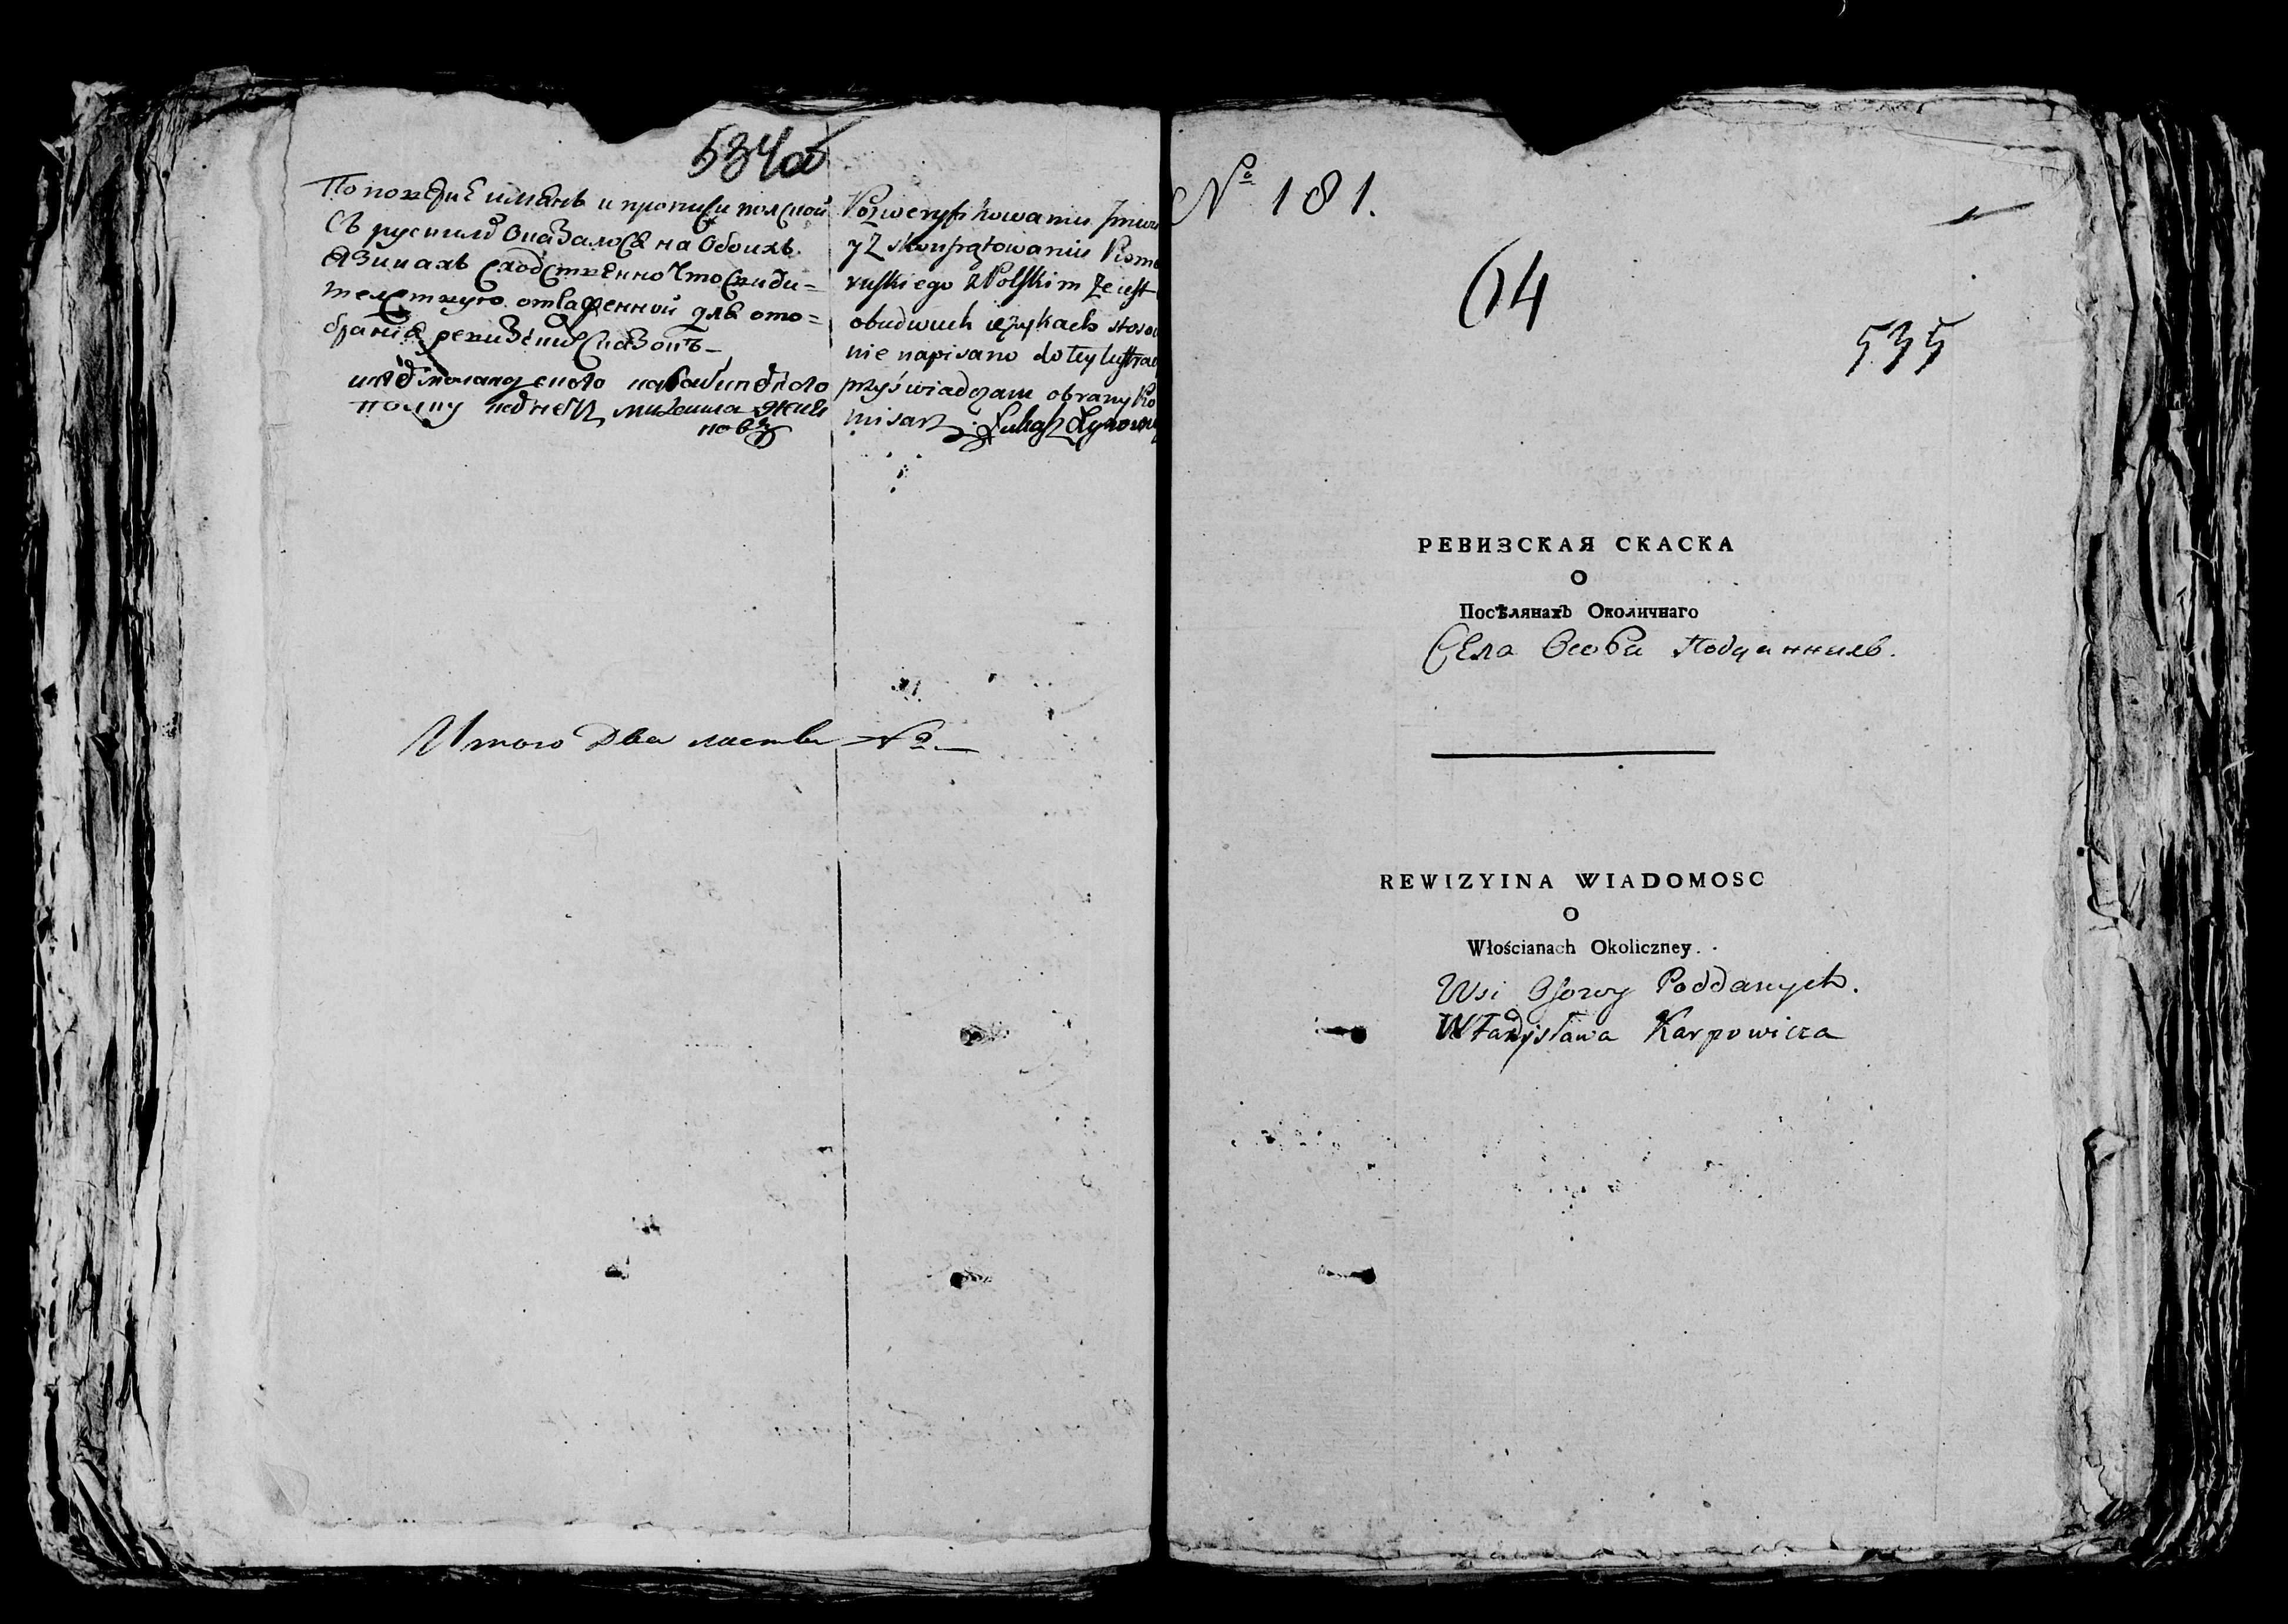 534об
По повѣрке имянъ и прописи полской
Съ рускимъ оказалось на обоихъ
язикахъ сходственно что свиди=
телствую отряженной для ото=
бранія ревизкихъ сказокъ
полку
Pozweryfikowaniu Imion
y Zkonfrątowaniu Pisma
ruskiego z Polskim że iest
obudwuch ięzykach stoso
nie napisano do tey lustrac
przyświadczam obrany Ko
misarz Łukasz
Итого два листы № 2
№ 181.
64
535
РЕВИЗСКАЯ СКАСКА
О
Посѣлянахъ Околичнаго
Села Особы Подданнихъ.
REWIZYINA WIADOMOSC
O
Włościanach Okoliczney.
Wsi Osowy Poddanych.
Władysława Karpowicza